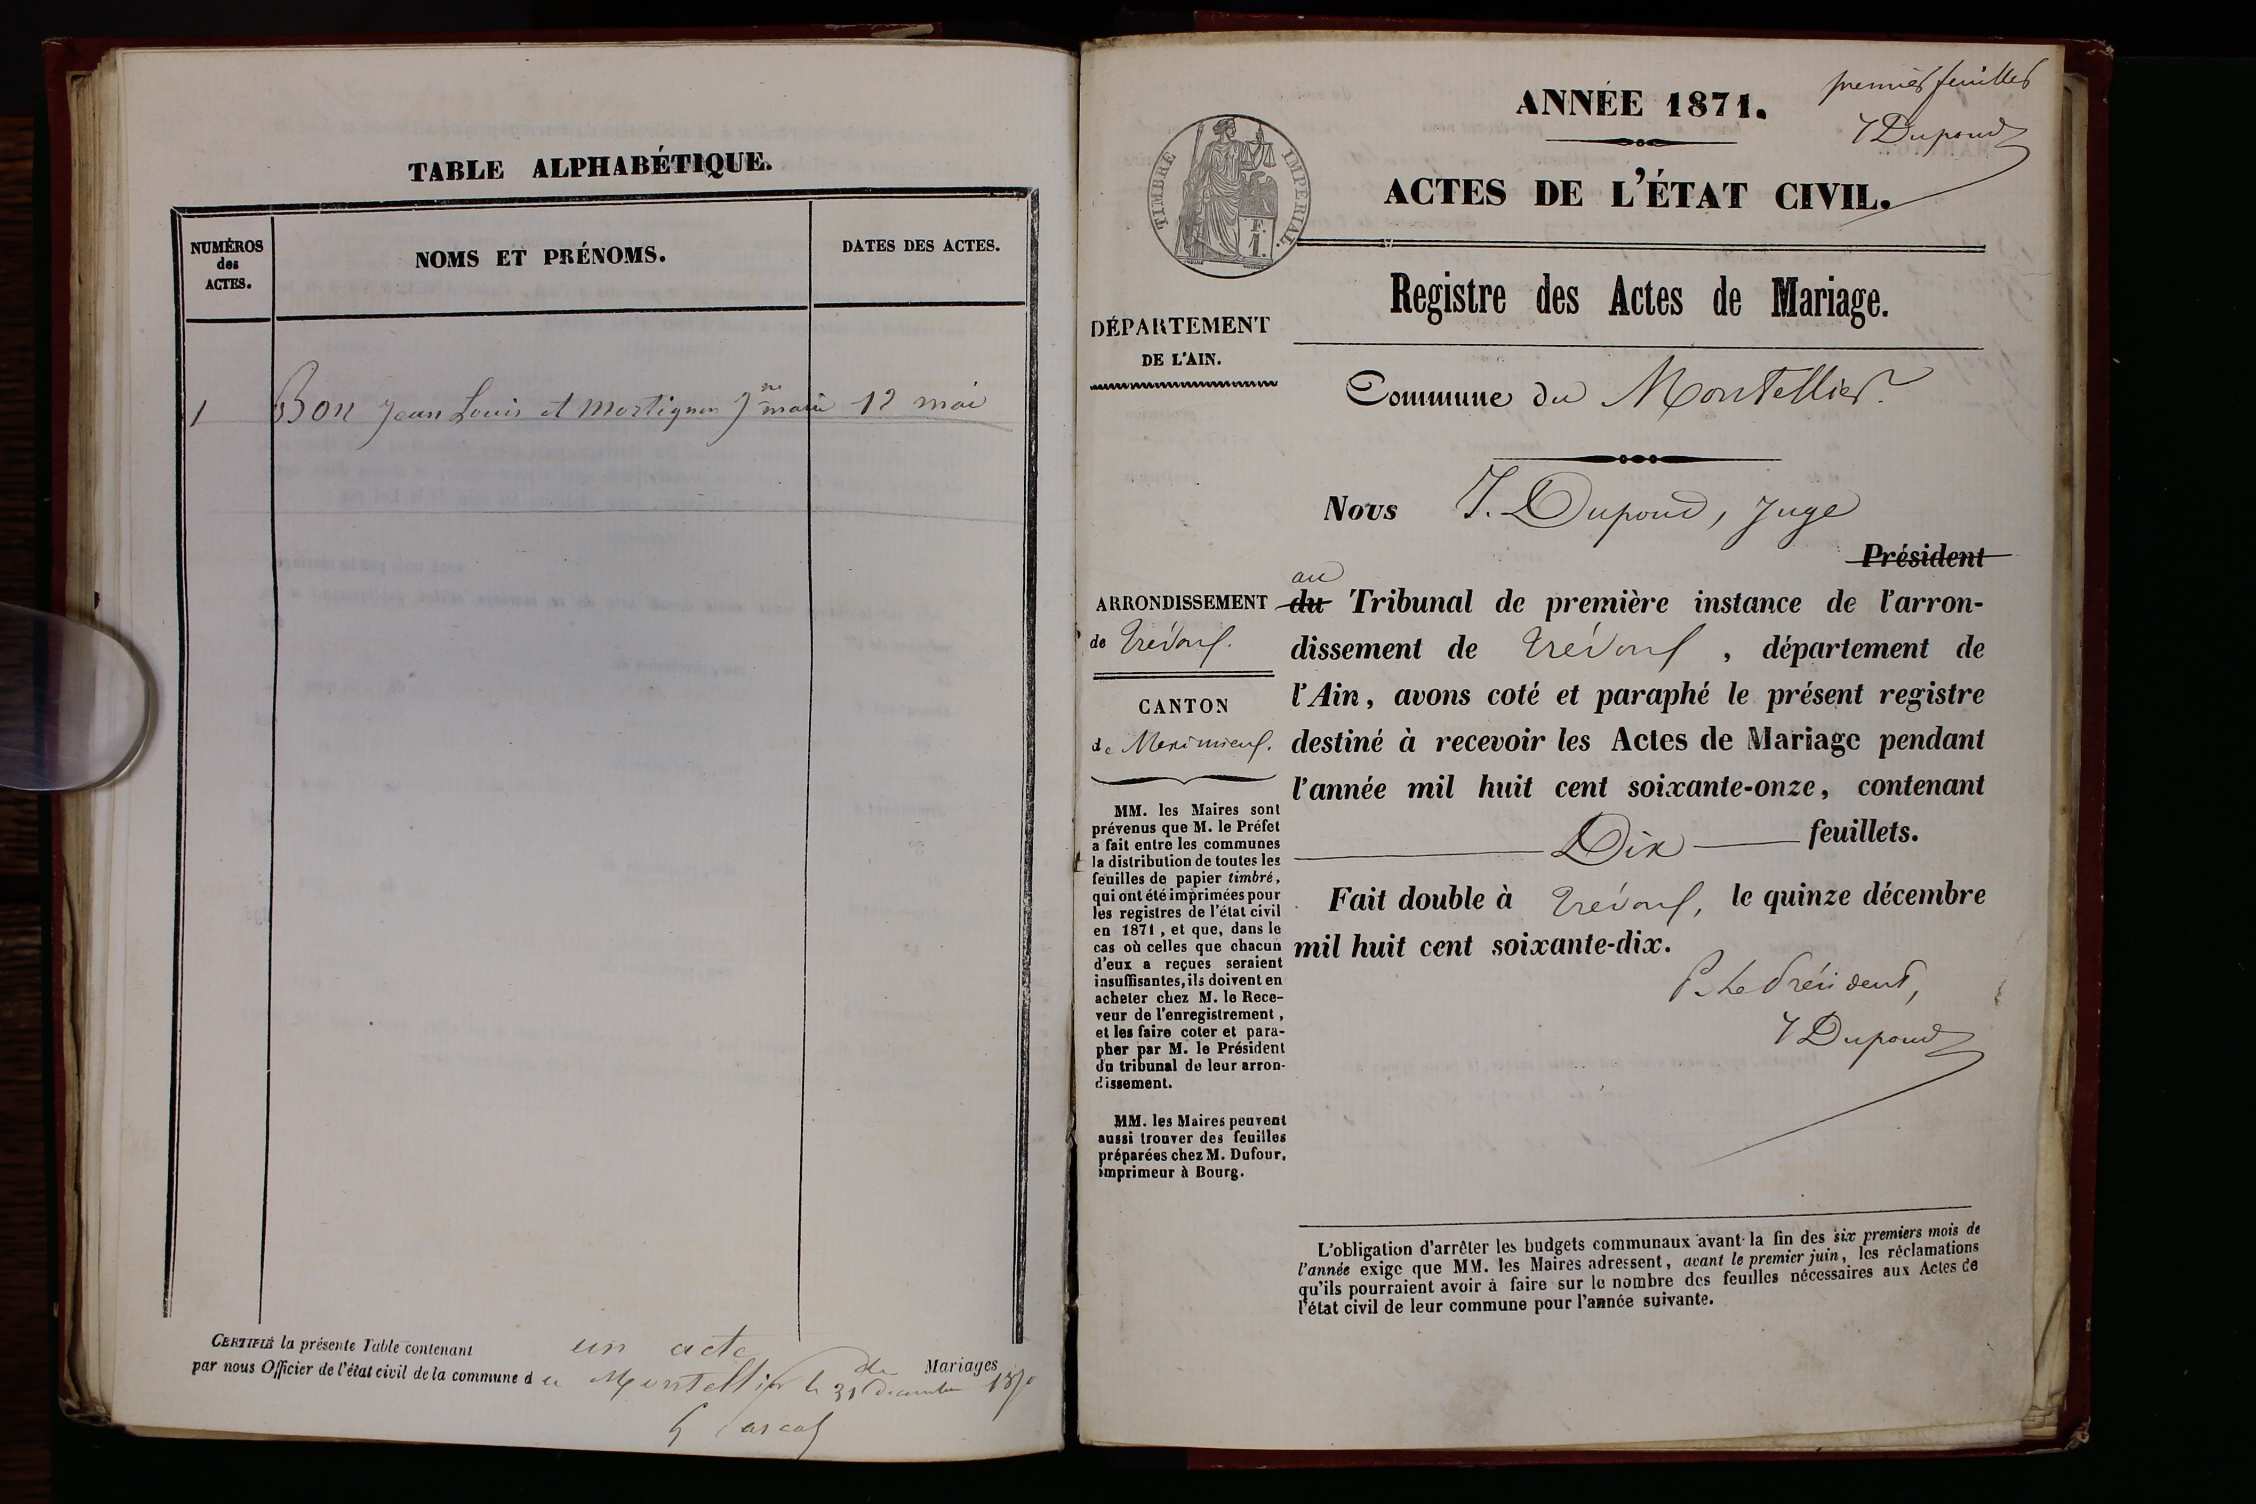 TABLE ALPHABÉTIQUE.
NUMÉROS
des
ACTES.
NOMS ET PRÉNOMS.
DATES DES ACTES.
1 Bon Jean Louis et Mortignon Jne marie 12 mai
CERTIFIÉ la présente Table contenant un acte de Mariages
par nous Officier de l'état civil de la commune du Montellier le 31 décembre 1870
ANNÉE 1871.
premier feuillet
J Dupond
ACTES DE L'ÉTAT CIVIL.
TIMBRE IMPÉRIAL.
F.
1.
Registre des Actes de Mariage.
DÉPARTEMENT
DE L'AIN.
Commune du Montellier
Nous J. Dupond, Juge
Président
au
du Tribunal de première instance de l'arron-
dissement de Trévoux, département de
l'Ain, avons coté et paraphé le présent registre
destiné à recevoir les Actes de Mariage pendant
l'année mil huit cent soixante-onze, contenant
Dix feuillets.
Fait double à Trévoux, le quinze décembre
mil huit cent soixante-dix.
P. Le Président,
J Dupond
ARRONDISSEMENT
de Trévoux.
CANTON
de Meximieux.
MM. les Maires sont
prévenus que M. le Préfet
a fait entre les communes
la distribution de toutes les
feuilles de papier timbré,
qui ont été imprimées pour
les registres de l'état civil
en 1871, et que, dans le
cas où celles que chacun
d'eux a reçues seraient
insuffisantes, ils doivent en
acheter chez M. le Rece-
veur de l'enregistrement,
et les faire coter et para-
pher par M. le Président
du tribunal de leur arron-
dissement.
MM. les Maires peuvent
aussi trouver des feuilles
préparées chez M. Dufour,
imprimeur à Bourg.
L'obligation d'arrêter les budgets communaux avant la fin des six premiers mois de
l'année exige que MM. les Maires adressent, avant le premier juin, les réclamations
qu'ils pourraient avoir à faire sur le nombre des feuilles nécessaires aux Actes de
l'état civil de leur commune pour l'année suivante.